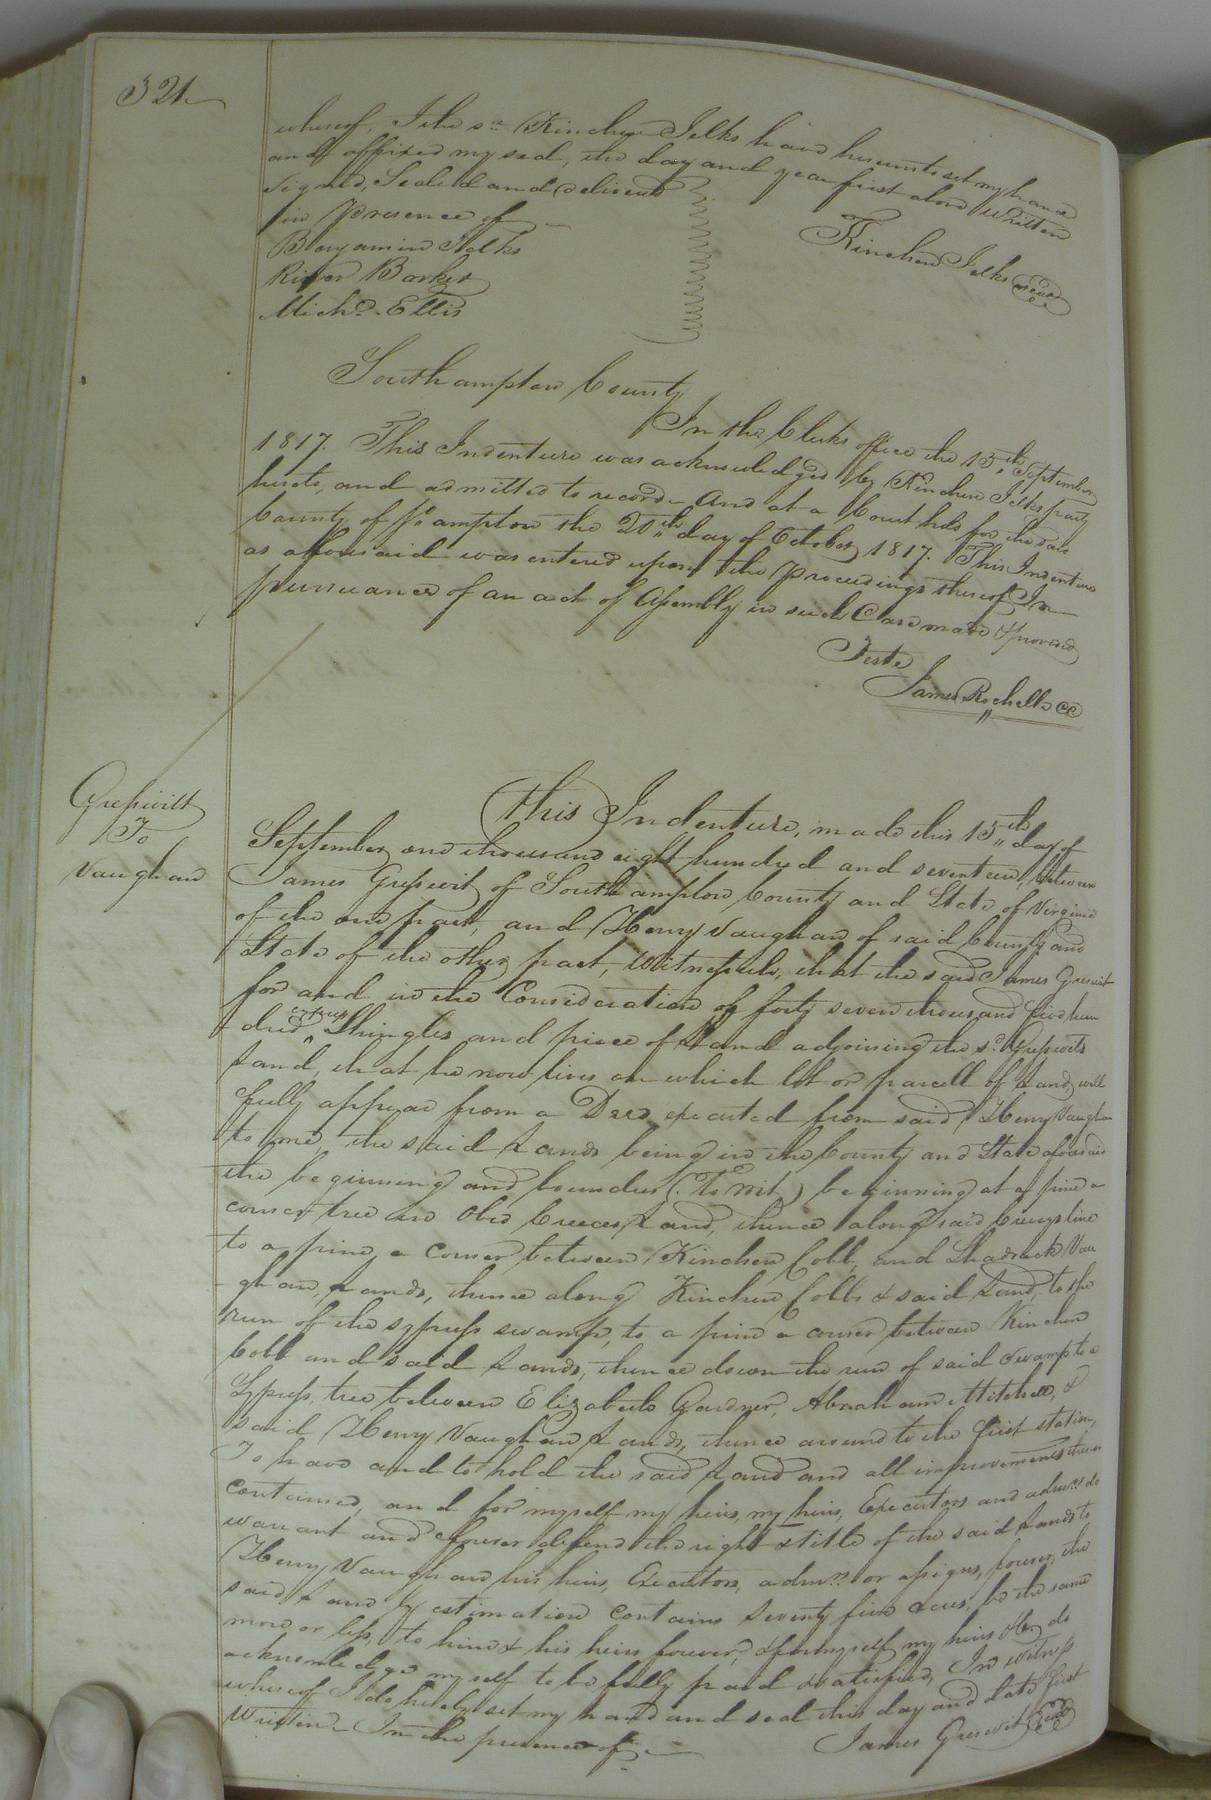 321
whereof, I the sd. Kinchen Jelks have hereunto set my hand
and affixed my seal, the day and year first above Written
Signed, Sealed and delivered
in presence of
Benjamin Jelks
River Barker
Michd. Ellis
Kinchen Jelks Seal
Southampton County
In the Clerks office the 15th September
1817. This Indenture was acknowledged by Kinchen Jelks party
hereto, and admitted to record. And at a Court held for the said
County of So ampton the 20th day of October 1817. This Indenture
as aforesaid was entered upon the proceedings thereof In
pursuance of an act of Assembly in such Case made & provided
Teste
James Rochelle CC
Gresswitt
To
Vaughan
This Indenture, made this 15th day of
September one thousand eight hundred and seventeen, between
James Gresswit of Southampton County and State of Virginia
of the one part, and Henry Vaughan of said County and
State of the other part, Witnesseth, that the said James Greswit
for and in the Consideration of forty seven thousand five hun
dred cypress Shingles and piece of Land adjoining the sd. Gresswits
Land, that he now lives on which lot or parcell of Land, will
fully appear from a Deed executed from said Henry Vaughan
to me, the said Lands being in the County and State aforesaid
the beginning and bounders (To Wit) beginning at a pine a
corner tree in Obed Creeces Land, thence along said Creecys line
to a pine, a corner between Kinchen Cobb, and Shadrack Vau
ghan, Lands, thence along Kinchen Cobbs & said Land, to the
run of the sypress swamp, to a pine a corner between Kinchen
Cobb and said Lands, thence down the run of said swamp to a
Sypress, tree between Elizabeth Gardner, Abraham Mitchell, &
said Henry Vaughan Lands, thence around to the first station,
To have and to hold the said Land and all improvements therein
contained, and for myself my heirs, my heirs, Executors and admrs do
warrant and forever defend the right & title of the said Lands to
Henry Vaughan his heirs, Executors, admrs or assigns, forever, the
said Land by estimation Contains Seventy five acres, be the same
more or less, to him & his heirs forever, & for myself my heirs &c do
acknowledge myself to be fully paid & satisfied, In witness
whereof I do hereby set my hand and seal this day and date first
Written In the presence of
James Greswit Seal